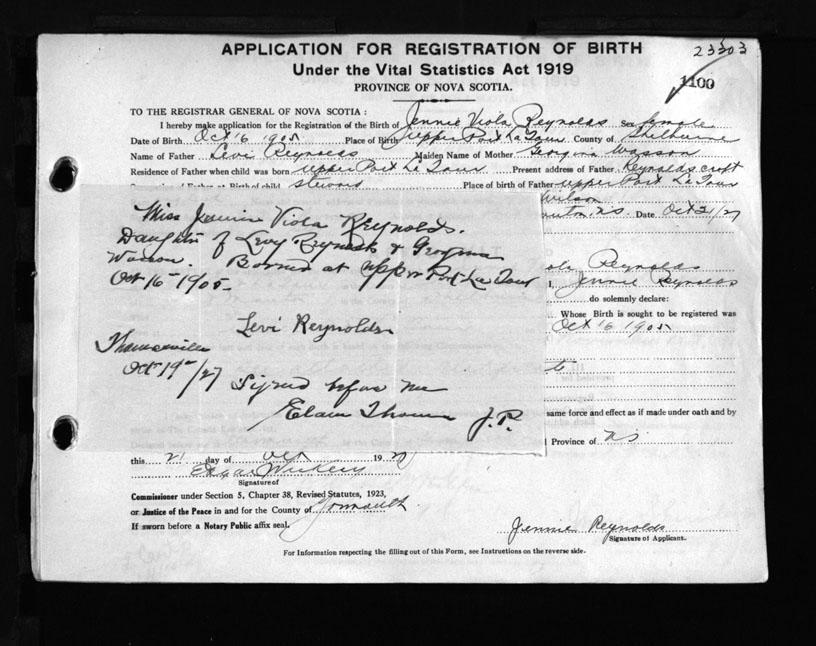 APPLICATION FOR REGISTRATION OF BIRTH
23303
Under the Vital Statistics Act 1919
1100
PROVINCE OF NOVA SCOTIA.
TO THE REGISTRAR GENERAL OF NOVA SCOTIA :
I hereby make application for the Registration of the Birth of Jennie Viola Reynolds Sex female
Date of Birth Oct 16 1905 Place of Birth Upper Port La Tour County of Shelburne
Name of Father Levi Reynolds Maiden Name of Mother Georgina Wasson
Residence of Father when child was born Upper Port La Tour Present address of Father Reynoldscroft
of Father at Birth of child Place of birth of Father Upper Port La Tour
N.S. Date. Oct 21/27
Miss Jennie Viola Reynolds.
Daughter of Levy &
Wasson. Borned at Upper Port La Tour
Oct 16 - 1905 -
Levi Reynolds
Oct 19th/27
Signed before me
J.P.
Reynolds
I, Jennie Reynolds
do solemnly declare:
Whose Birth is sought to be registered was
Oct 16 1905
to
same force and effect as if made under oath and by
Province of NS
this 21 day of Oct 1927
Signature of
Commissioner under Section 5, Chapter 38, Revised Statutes, 1923,
or Justice of the Peace in and for the County of Yarmouth
If sworn before a Notary Public affix seal.
Jennie Reynolds
Signature of Applicant.
For Information respecting the filling out of this Form, see Instructions on the reverse side.